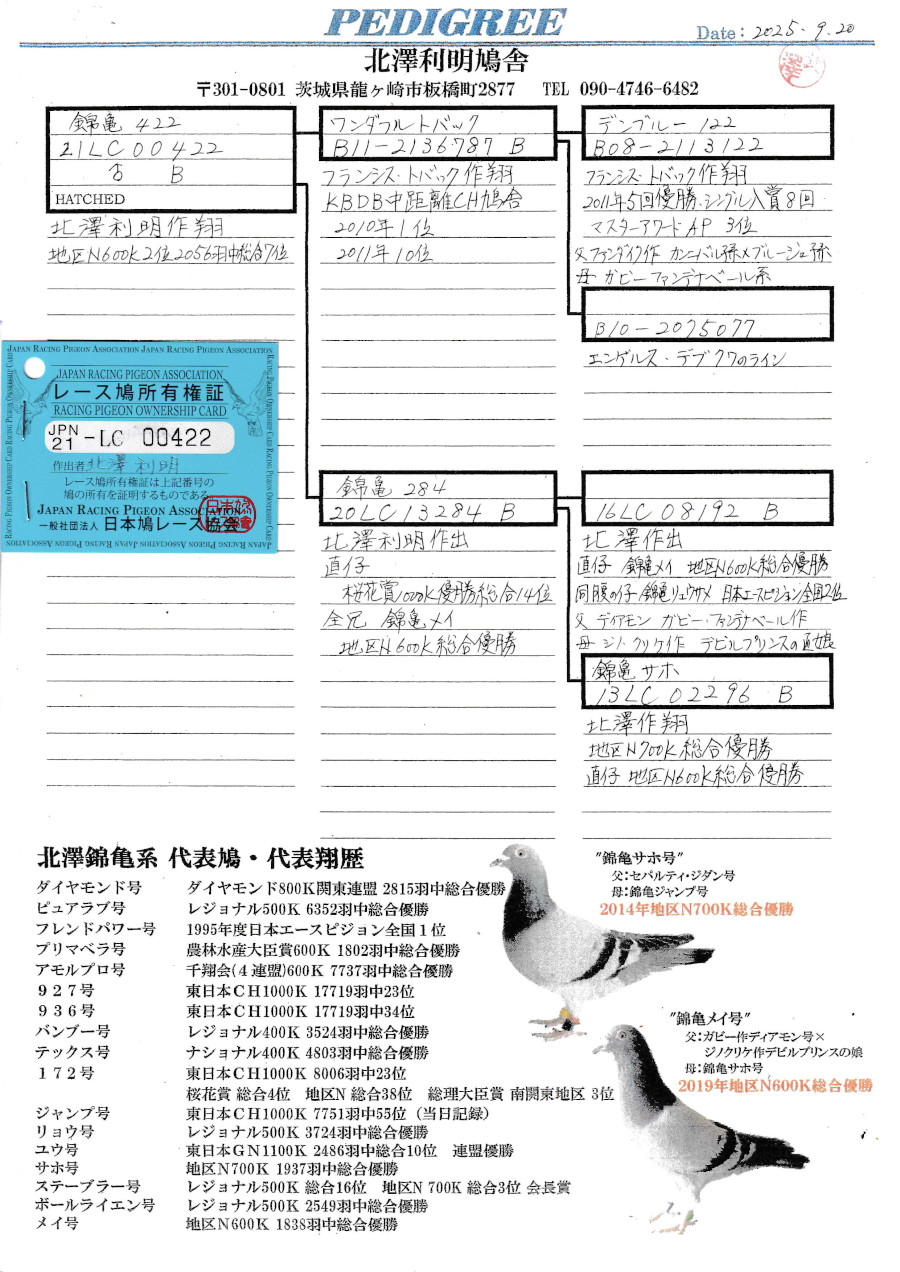 PEDIGREE
Date: 2025. 9. 20
北澤利明鳩舎
〒301-0801 茨城県龍ヶ崎市板橋町2877 TEL 090-4746-6482
錦亀 422
21LC00422
♂ B
HATCHED
北澤利明作翔
地区N600K2位2056羽中総合7位
ワンダフルトバック
B11-2136787 B
フランシス・トバック作翔
KBDB中距離CH鳩舎
2010年1位
2011年10位
デンブルー 122
B08-2113122
フランシス・トバック作翔
2011年5回優勝、シングル入賞8回
マスターアワードAP 3位
父 ファンダイク作 カンニバル孫×ブルージュ孫
母 ガビーファンデナベール系
B10-2075077
エンゲルス・デブクワのライン
JAPAN RACING PIGEON ASSOCIATION JAPAN RACING PIGEON ASSOCIATION
JAPAN RACING PIGEON ASSOCIATION
レース鳩所有権証
RACING PIGEON OWNERSHIP CARD
JPN
21 -LC 00422
作出者 北澤利明
レース鳩所有権証は上記番号の
鳩の所有を証明するものである
JAPAN RACING PIGEON ASSOCIATION
一般社団法人 日本鳩レース協会
錦亀 284
20LC13284 B
北澤利明作出
直仔
桜花賞1000K優勝総合14位
全兄 錦亀メイ
地区N600K総合優勝
16LC08192 B
北澤作出
直仔 錦亀メイ 地区N600K総合優勝
同腹の仔 錦亀リュウサメ 日本エースピジョン全国2位
父 ディアモン ガビー・ファンデナベール作
母 ジノ・クリケ作 デビルプリンスの直娘
錦亀サホ
13LC02296 B
北澤作翔
地区N700K総合優勝
直仔 地区N600K総合優勝
北澤錦亀系 代表鳩・代表翔歴
ダイヤモンド号 ダイヤモンド800K関東連盟 2815羽中総合優勝
ピュアラブ号 レジョナル500K 6352羽中総合優勝
フレンドパワー号 1995年度日本エースピジョン全国1位
プリマベラ号 農林水産大臣賞600K 1802羽中総合優勝
アモルプロ号 千翔会(4連盟)600K 7737羽中総合優勝
927号 東日本CH1000K 17719羽中23位
936号 東日本CH1000K 17719羽中34位
バンブー号 レジョナル400K 3524羽中総合優勝
テックス号 ナショナル400K 4803羽中総合優勝
172号 東日本CH1000K 8006羽中23位
桜花賞 総合4位 地区N 総合38位 総理大臣賞 南関東地区 3位
ジャンプ号 東日本CH1000K 7751羽中55位（当日記録）
リョウ号 レジョナル500K 3724羽中総合優勝
ユウ号 東日本GN1100K 2486羽中総合10位 連盟優勝
サホ号 地区N700K 1937羽中総合優勝
ステーブラー号 レジョナル500K 総合16位 地区N 700K 総合3位 会長賞
ボールライエン号 レジョナル500K 2549羽中総合優勝
メイ号 地区N600K 1838羽中総合優勝
"錦亀サホ号"
父：セパルティ・ジダン号
母：錦亀ジャンプ号
2014年地区N700K総合優勝
"錦亀メイ号"
父：ガビー作ディアモン号×
ジノクリケ作デビルプリンスの娘
母：錦亀サホ号
2019年地区N600K総合優勝